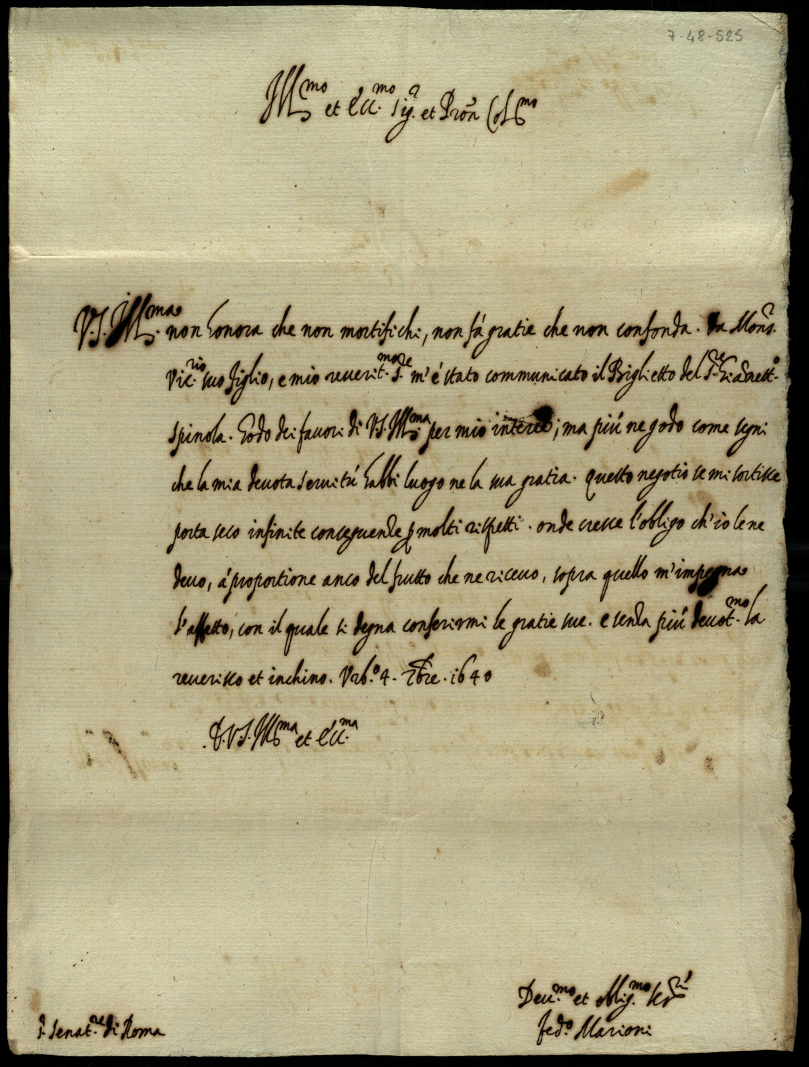 7-48-525
Ill.mo et Ecc.mo Sig.r et Pron Col.mo
V.S. Ill.ma non honora che non mortifichi, non fá gratie che non confonda. Da Mons.r
Vic.rio suo figlio, e mio reverit.mo S.re m'é stato communicato il Biglietto del S.re Giannett.o
Spinola. Godo dei favori di V.S. Ill.ma per mio interesse; ma piú ne godo come segni
che la mia devota servitú habbi luogo ne la sua gratia. Questo negotio se mi sortisce
porta seco infinite conseguenze p molti rispetti. onde cresce l'obligo ch'io le ne
devo, á proportione anco del frutto che ne ricevo, sopra quello m'impegna
l'affetto, con il quale si degna conferirmi le gratie sue. e senza piú devot.mo la
reverisco et inchino. Urb.o 4. Xbre. 1640
D. V.S. Ill.ma et Ecc.ma
Dev.mo et oblig.mo ser.re
Fed.o Marioni
S. Senat.re di Roma